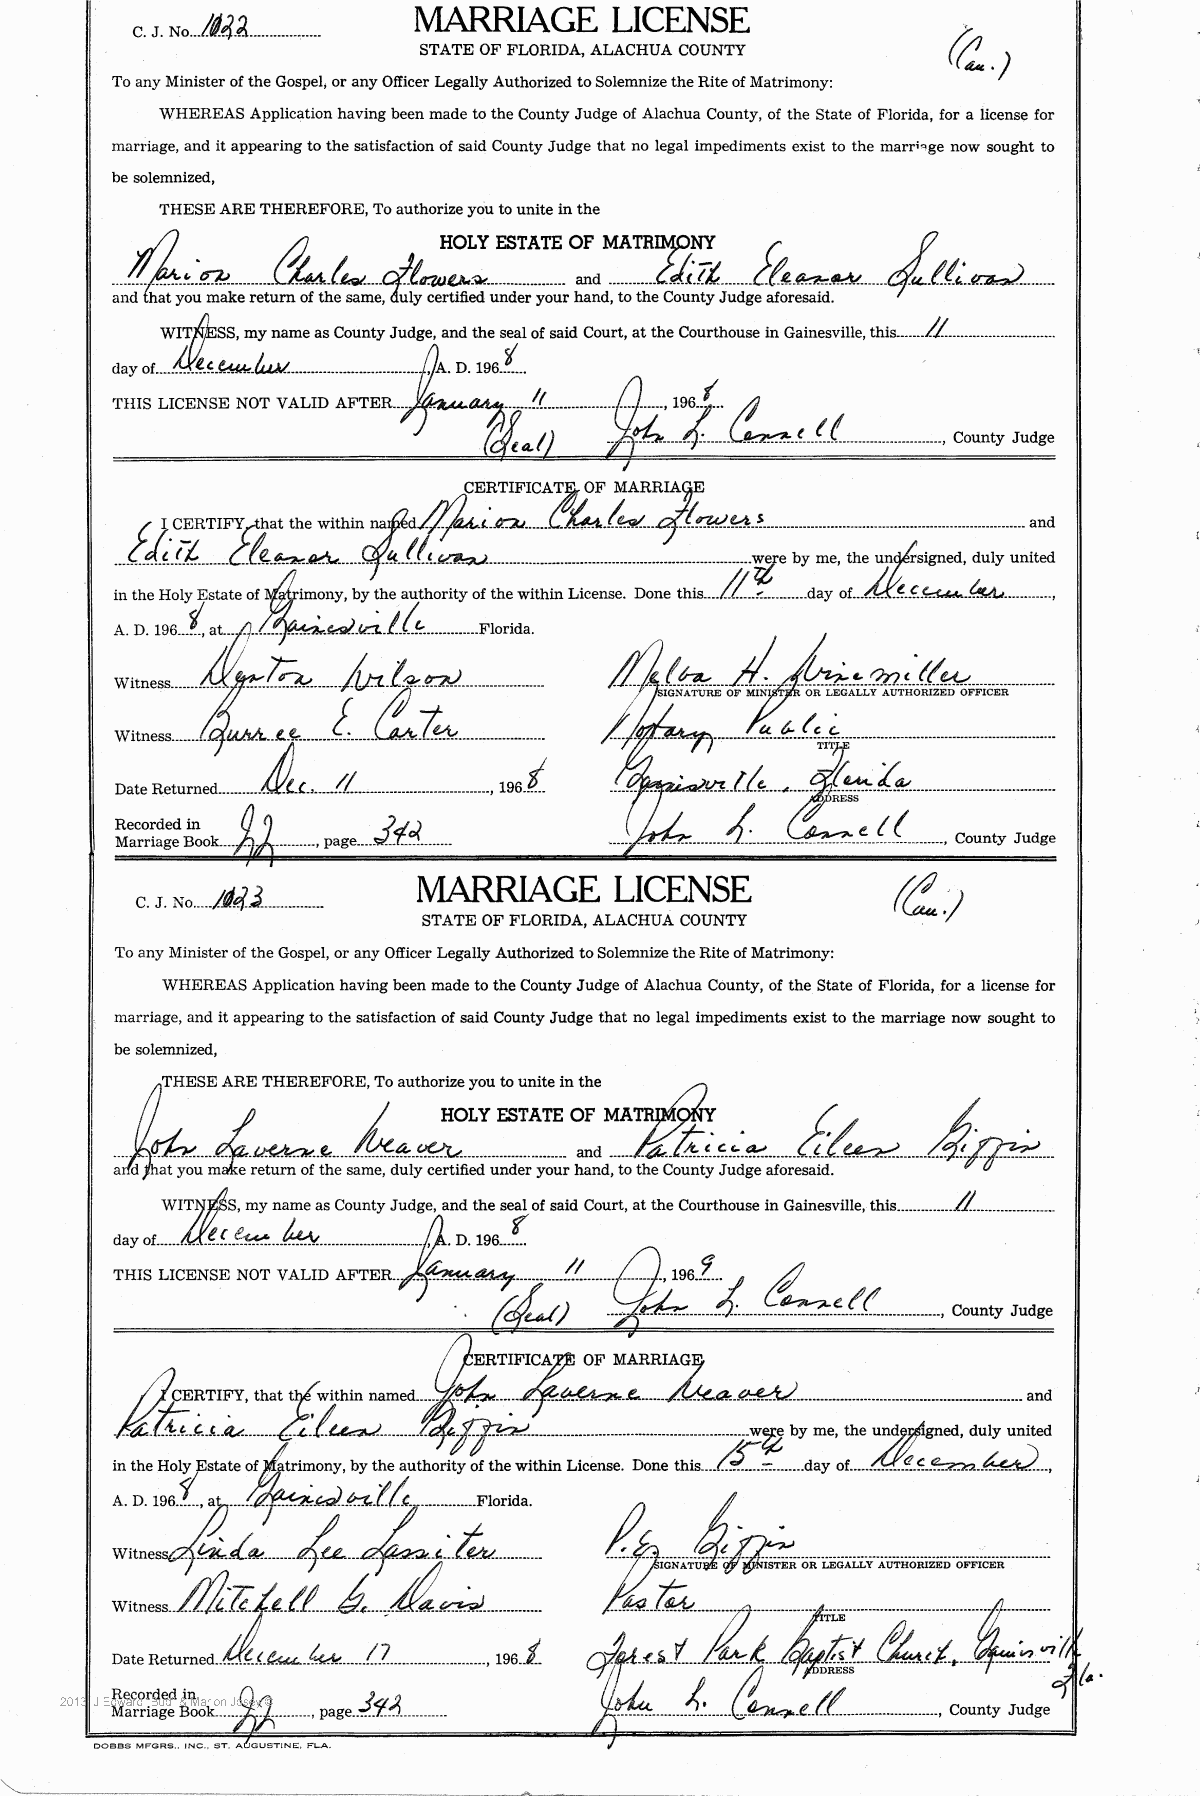 C. J. No. 1022
MARRIAGE LICENSE
STATE OF FLORIDA, ALACHUA COUNTY
(Cau.)
To any Minister of the Gospel, or any Officer Legally Authorized to Solemnize the Rite of Matrimony:
WHEREAS Application having been made to the County Judge of Alachua County, of the State of Florida, for a license for
marriage, and it appearing to the satisfaction of said County Judge that no legal impediments exist to the marriage now sought to
be solemnized,
THESE ARE THEREFORE, To authorize you to unite in the
HOLY ESTATE OF MATRIMONY
Marion Charles Flowers and Edith Eleanor Sullivan
and that you make return of the same, duly certified under your hand, to the County Judge aforesaid.
WITNESS, my name as County Judge, and the seal of said Court, at the Courthouse in Gainesville, this 11
day of December, A. D. 1968
THIS LICENSE NOT VALID AFTER January 11, 1968
(Seal) John L. Connell, County Judge
CERTIFICATE OF MARRIAGE
I CERTIFY, that the within named Marion Charles Flowers and
Edith Eleanor Sullivan were by me, the undersigned, duly united
in the Holy Estate of Matrimony, by the authority of the within License. Done this 11th day of December,
A. D. 1968, at Gainesville Florida.
Witness Denton Wilson Melva H. Winemiller
SIGNATURE OF MINISTER OR LEGALLY AUTHORIZED OFFICER
Witness Burree E. Carter Notary Public
TITLE
Date Returned Dec. 11, 1968 Gainisville, Florida
ADDRESS
Recorded in
Marriage Book JJ, page 342 John L. Connell, County Judge
C. J. No. 1023
MARRIAGE LICENSE
STATE OF FLORIDA, ALACHUA COUNTY
(Cau.)
To any Minister of the Gospel, or any Officer Legally Authorized to Solemnize the Rite of Matrimony:
WHEREAS Application having been made to the County Judge of Alachua County, of the State of Florida, for a license for
marriage, and it appearing to the satisfaction of said County Judge that no legal impediments exist to the marriage now sought to
be solemnized,
THESE ARE THEREFORE, To authorize you to unite in the
HOLY ESTATE OF MATRIMONY
John Laverne Weaver and Patricia Eileen Giffin
and that you make return of the same, duly certified under your hand, to the County Judge aforesaid.
WITNESS, my name as County Judge, and the seal of said Court, at the Courthouse in Gainesville, this 11
day of December, A. D. 1968
THIS LICENSE NOT VALID AFTER January 11, 1969
(Seal) John L. Connell, County Judge
CERTIFICATE OF MARRIAGE
I CERTIFY, that the within named John Laverne Weaver and
Patricia Eileen Giffin were by me, the undersigned, duly united
in the Holy Estate of Matrimony, by the authority of the within License. Done this 15th day of December,
A. D. 1968, at Gainesville Florida.
Witness Linda Lee Lassiter P. E. Giffin
SIGNATURE OF MINISTER OR LEGALLY AUTHORIZED OFFICER
Witness Mitchell G. Davis Pastor
TITLE
Date Returned December 17, 1968 Forest Park Baptist Church, Gainisville
Fla.
ADDRESS
Recorded in
Marriage Book JJ, page 342 John L. Connell, County Judge
DOBBS MFGRS., INC., ST. AUGUSTINE, FLA.